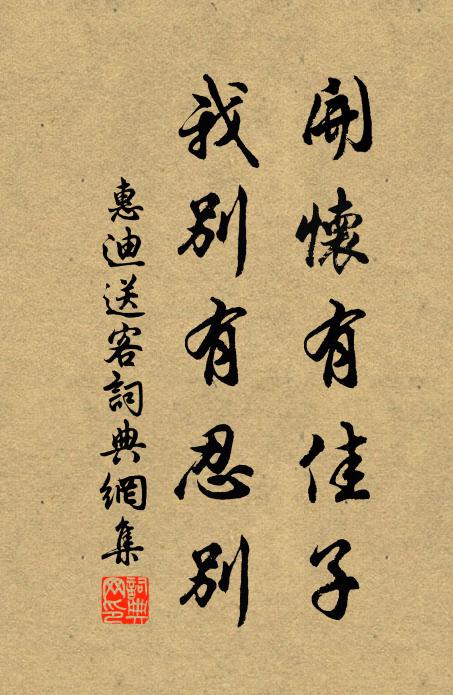 開懷有佳子
我別有忍別
惠迪送客詞典網集
詞典網印